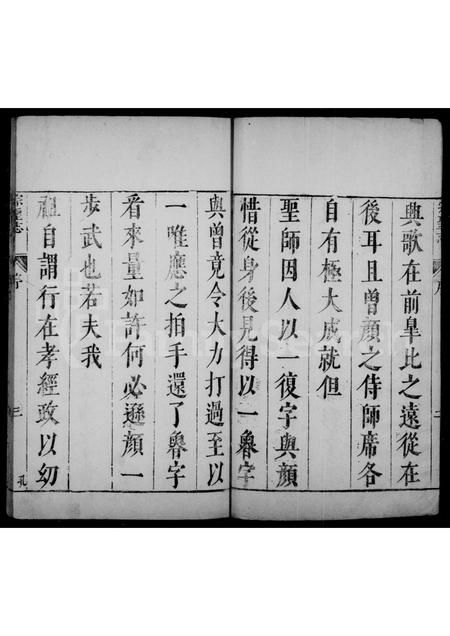 與歌在前皐比之遠從在
後耳且曾顏之侍師席各
自有極大成就但
聖師因人以一復字與顏
惜從身後見得以一魯字
與曾竟令大力打過至以
一唯應之拍手還了魯字
看來量如許何必遜顏一
步武也若夫我
祖自謂行在孝經政以幼
宗聖志
序
三
孔